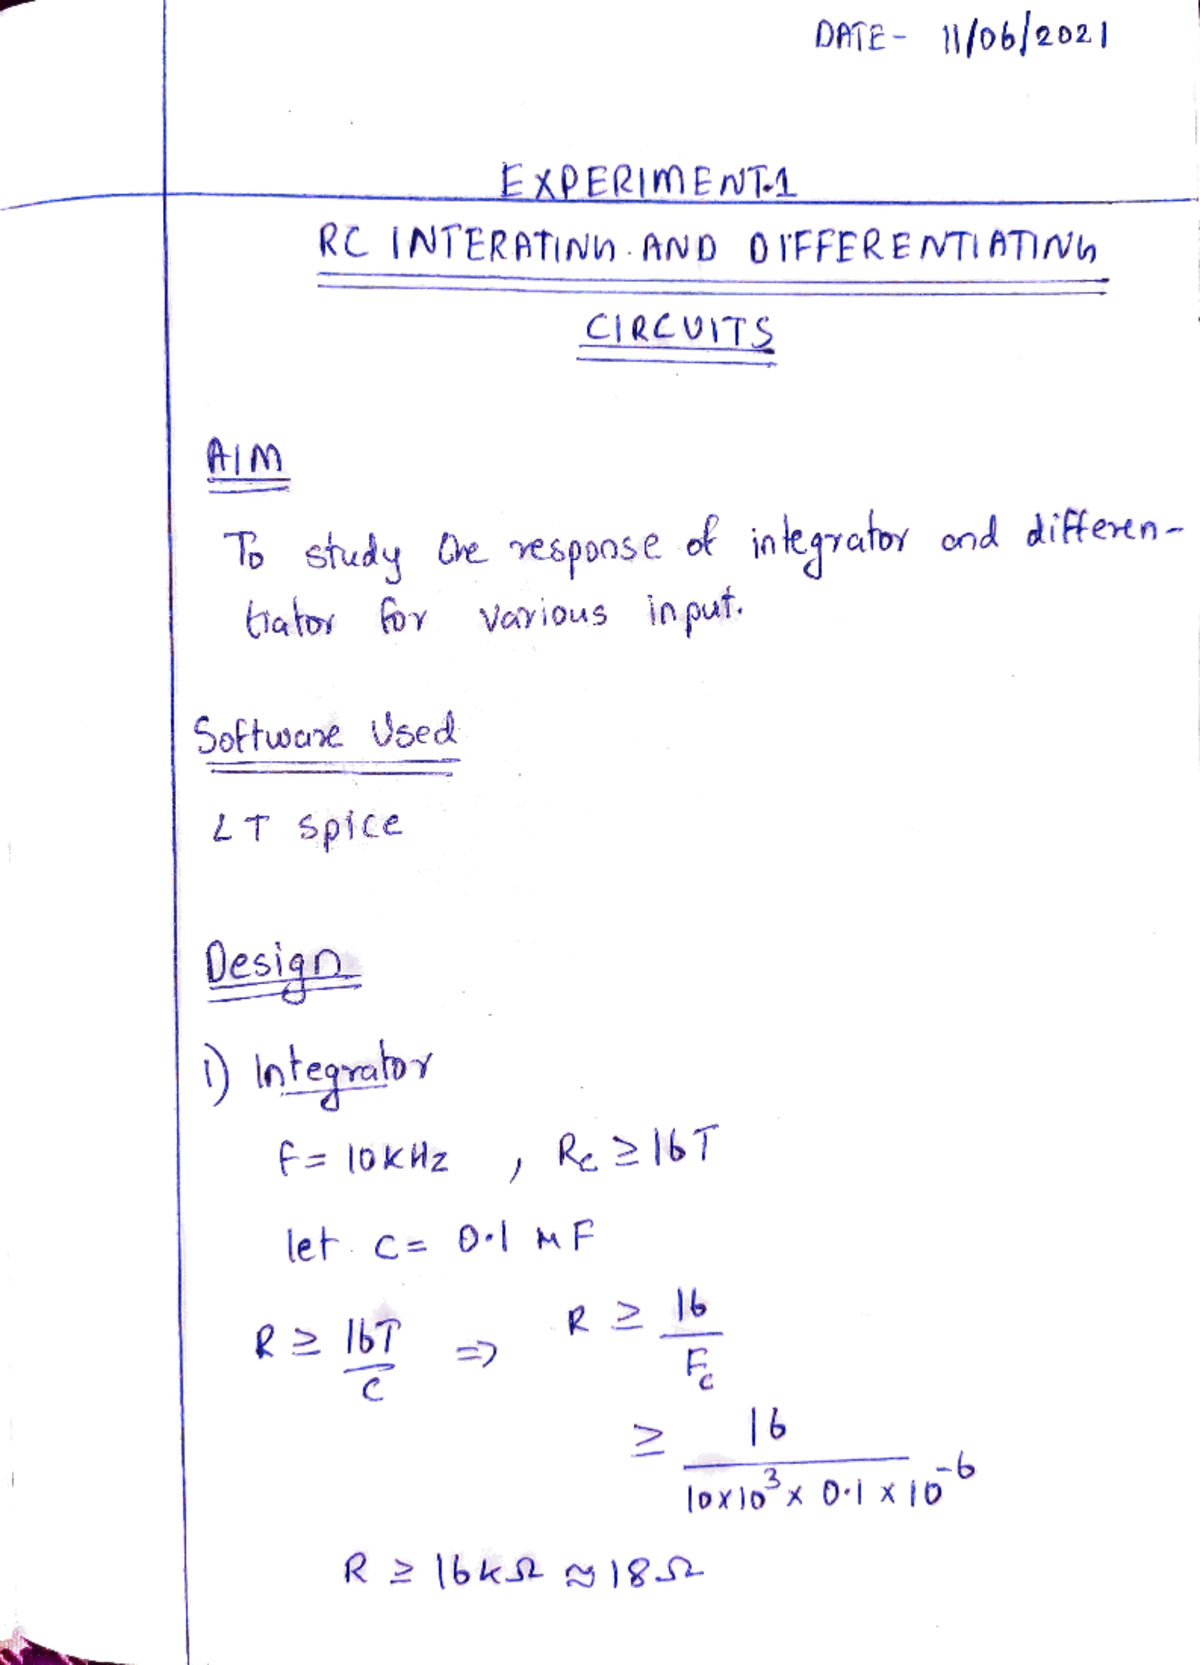 DATE- 11/06/2021
EXPERIMENT-1
RC INTERATING AND DIFFERENTIATING
CIRCUITS
AIM
To study the response of integrator and differen-
tiator for various input.
Software Used
LT spice
Design
1) Integrator
f = 10KHz , Rc ≥ 16T
let C = 0.1 μF
R ≥ 16T/C ⇒ R ≥ 16/Fc
≥ 16/10×10³× 0.1 × 10⁻⁶
R ≥ 16kΩ ≈ 18Ω